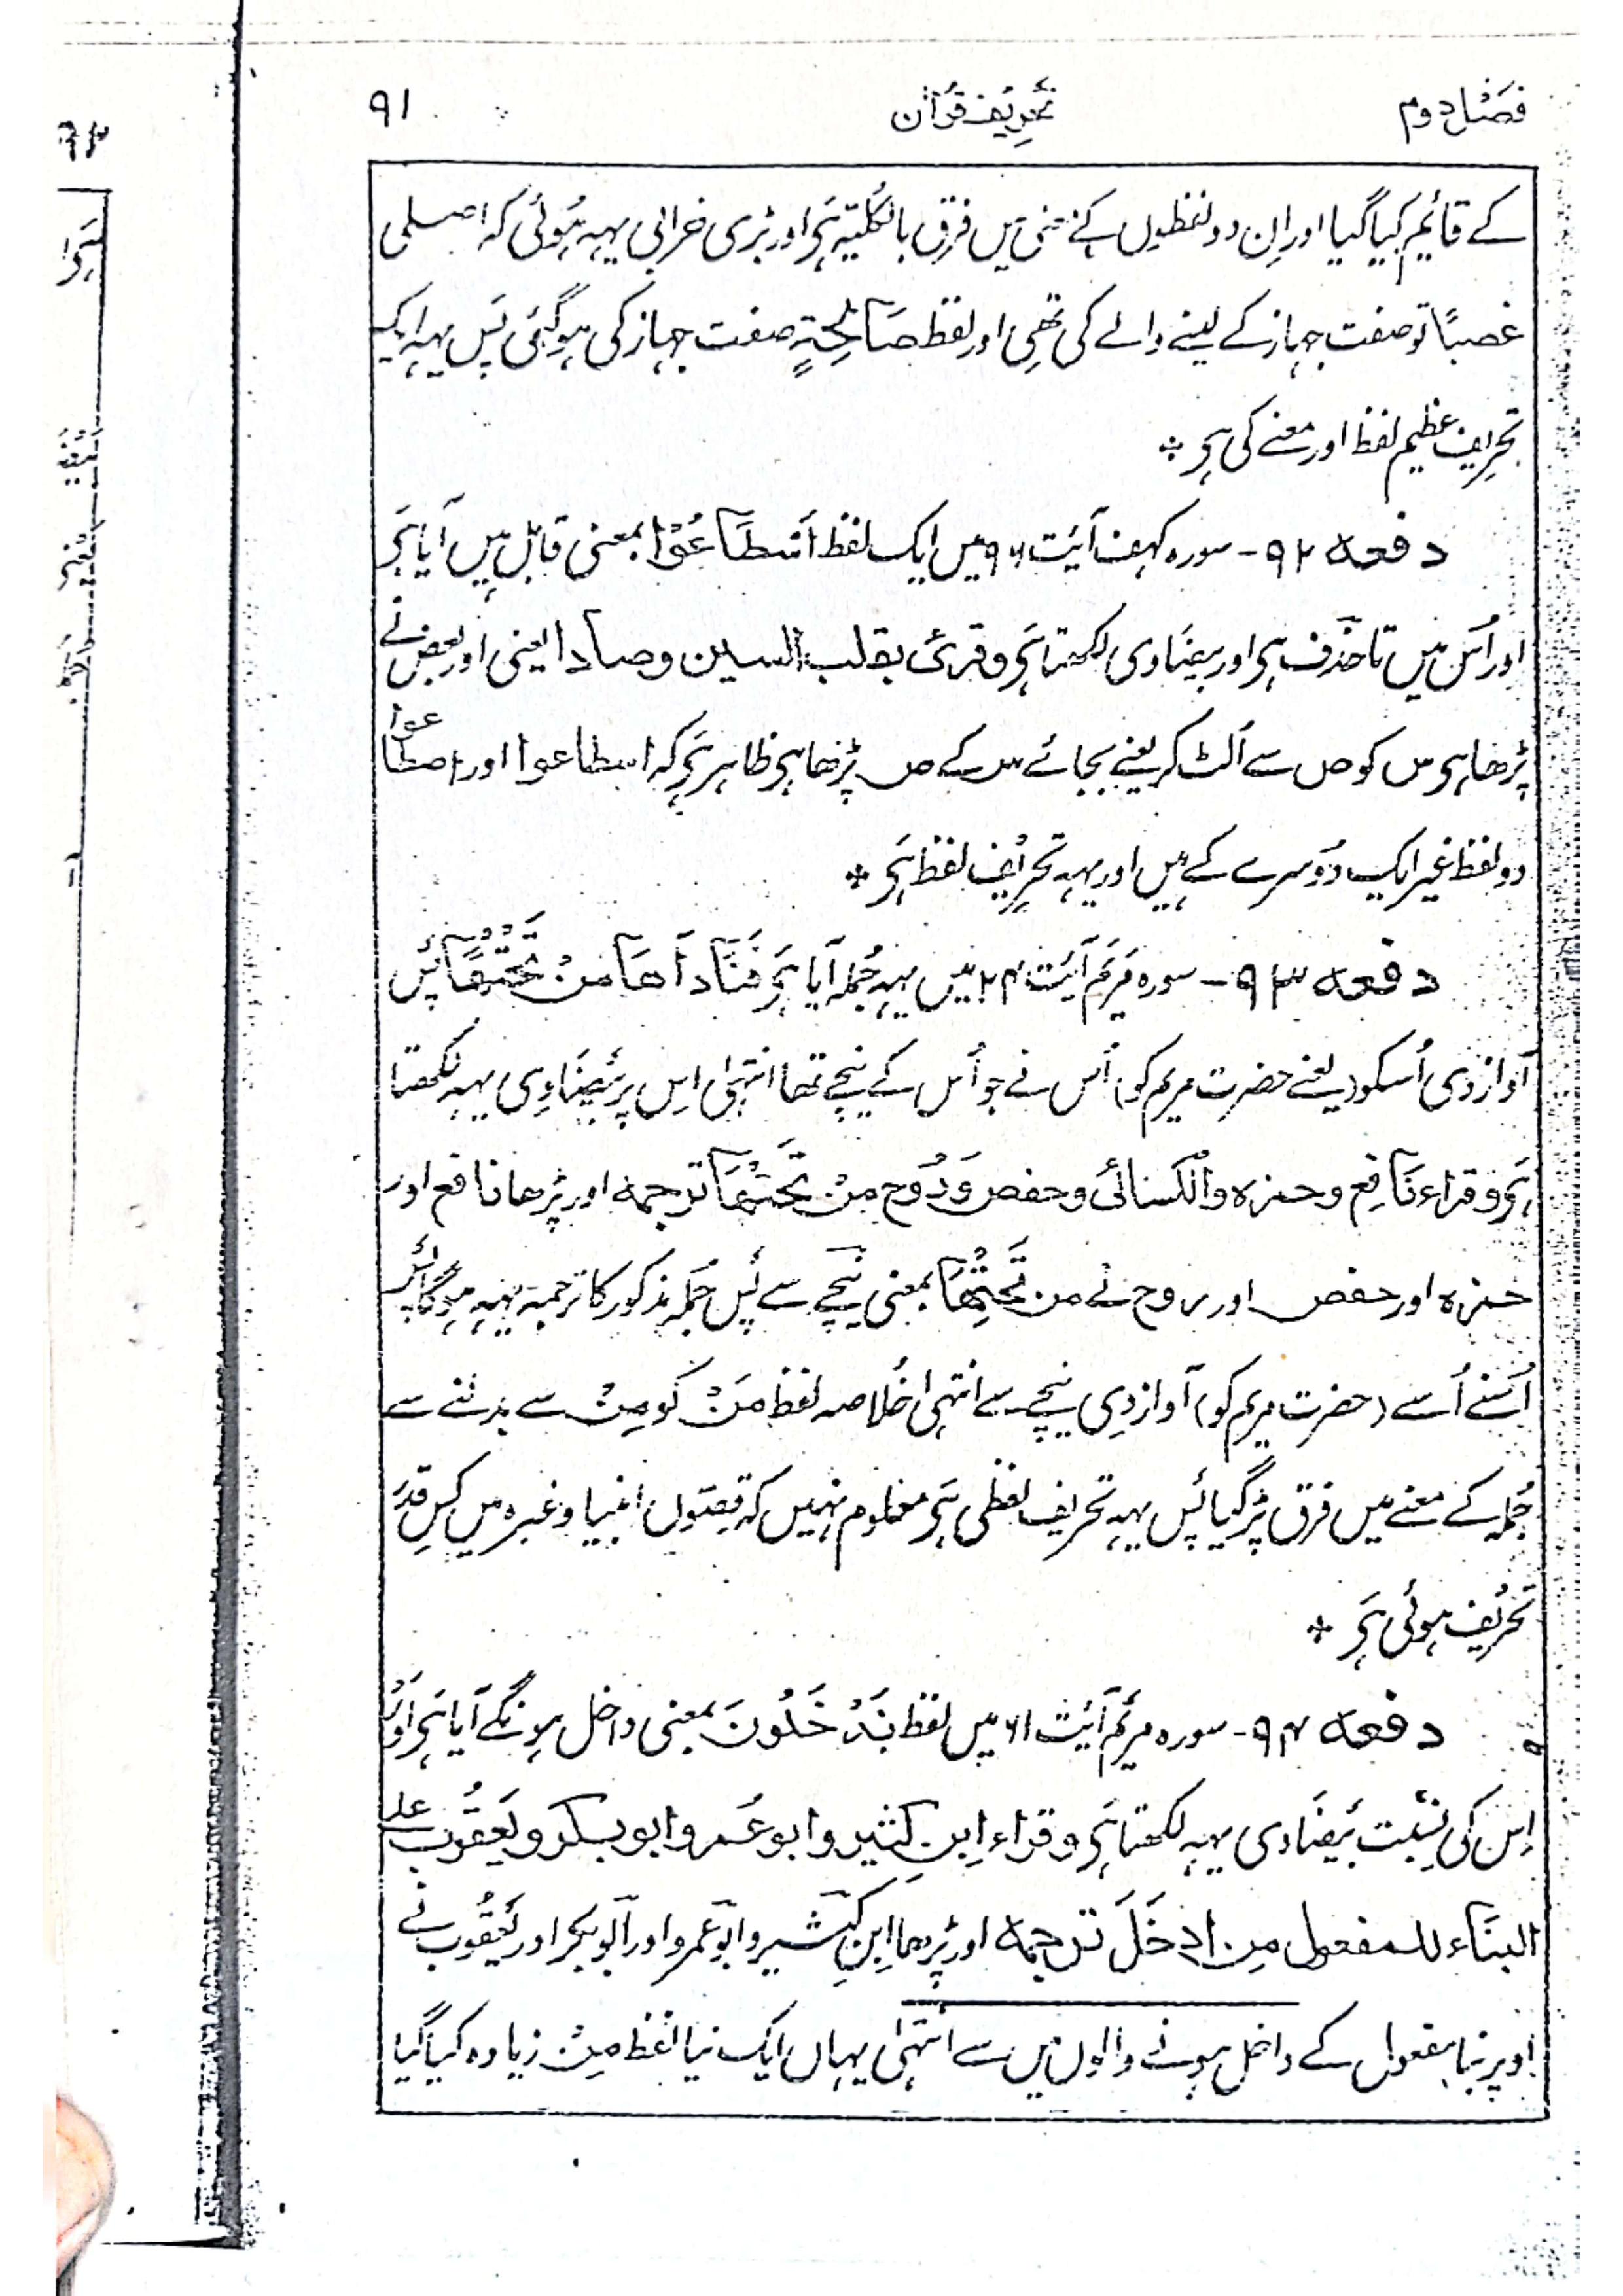 فصل دوم تحریف قرآن ۹۱
کے قائیم کیا گیا اور اِن دو لفظوں کے معنی میں فرق بالکلیّہ ہَی اور بڑی خرابی یہہ ہُوئی کہ اصلی
غصباً تو صفت جہاز کے لینے والے کی تھی اور لفظ صَالِحَةٍ صفت جہاز کی ہوگئی پس یہہ ایک
تحریف عظیم لفظ اور معنے کی ہی *
دفعہ ۹۲ - سورہ کہف آیت ۹۶ میں ایک لفظ اَسْطَاعُوْا بمعنی قابل ہیں آیا ہَی
اور اُس میں تا حذف ہی اور بیضاوی لکھتا ہَی وقرئ بقلب السین وصادا یعنی اور بعض نے
پڑھا ہی س کو ص سے اُلٹ کر یعنے بجائے س کے ص پڑھا ہی ظاہر ہَی کہ اسطاعوا اور اصطاعوا
دو لفظ غیر ایک دوسرے کے ہیں اور یہہ تحریف لفظ ہَی *
دفعہ ۹۳ - سورہ مَریَم آیَت ۲۴ میں یہہ جُملہ آیا ہَی فَنَادَاهَا مَنْ تَحْتَهَا پس
آواز دی اُسکو (یعنے حضرت مریم کو) اُس نے جو اُس کے نیچے تھا انتہیٰ اِس پر بَیضَاوِی یہہ لکھتا
ہَی وقراء نَافِع وحمزہ والکسائی وحفص وَرُوح مِنْ تَحْتِهَا ترجمہ اور پڑھا نافع اور
حمزہ اور حفص اور روح نے من تَحْتِهَا بمعنی نیچے سے پَس جُملہ مذکور کا ترجمہ یہہ ہوگا پس
اُسنے اُسے (حضرت مریم کو) آواز دِی نیچے سے انتہیٰ خُلاصہ لفظ مَنْ کو مِنْ سے بدلنے سے
جُملہ کے معنے میں فرق پڑ گیا پَس یہہ تحریف لفظی ہَی معلوم نہیں کہ قِصّوں انبیا وغیرہ میں کِس قدَر
تحریف ہوئی ہَی *
دفعہ ۹۴ - سورہ مریَم آیَت ۶۱ میں لفظ یَدْخَلُونَ بمعنی داخل ہونگے آیا ہَی اَوْر
اِس کی نِسبت بَیضَاوی یہہ لکھتا ہَی وقراء اِبن کثیر وابو عَمر وابو بکر ویَعقُوب علی
البنَاء للمفعول مِن ادخَلَ ترجمہ اور پڑھا اِبن کثیر وابو عَمرو اور ابو بکر اور یَعقُوب نے
اوپر بِنا مفعول کے داخل ہونے والوں میں سے انتہیٰ یہاں ایک نیا لفظ مِنْ زیادہ کیا گیا